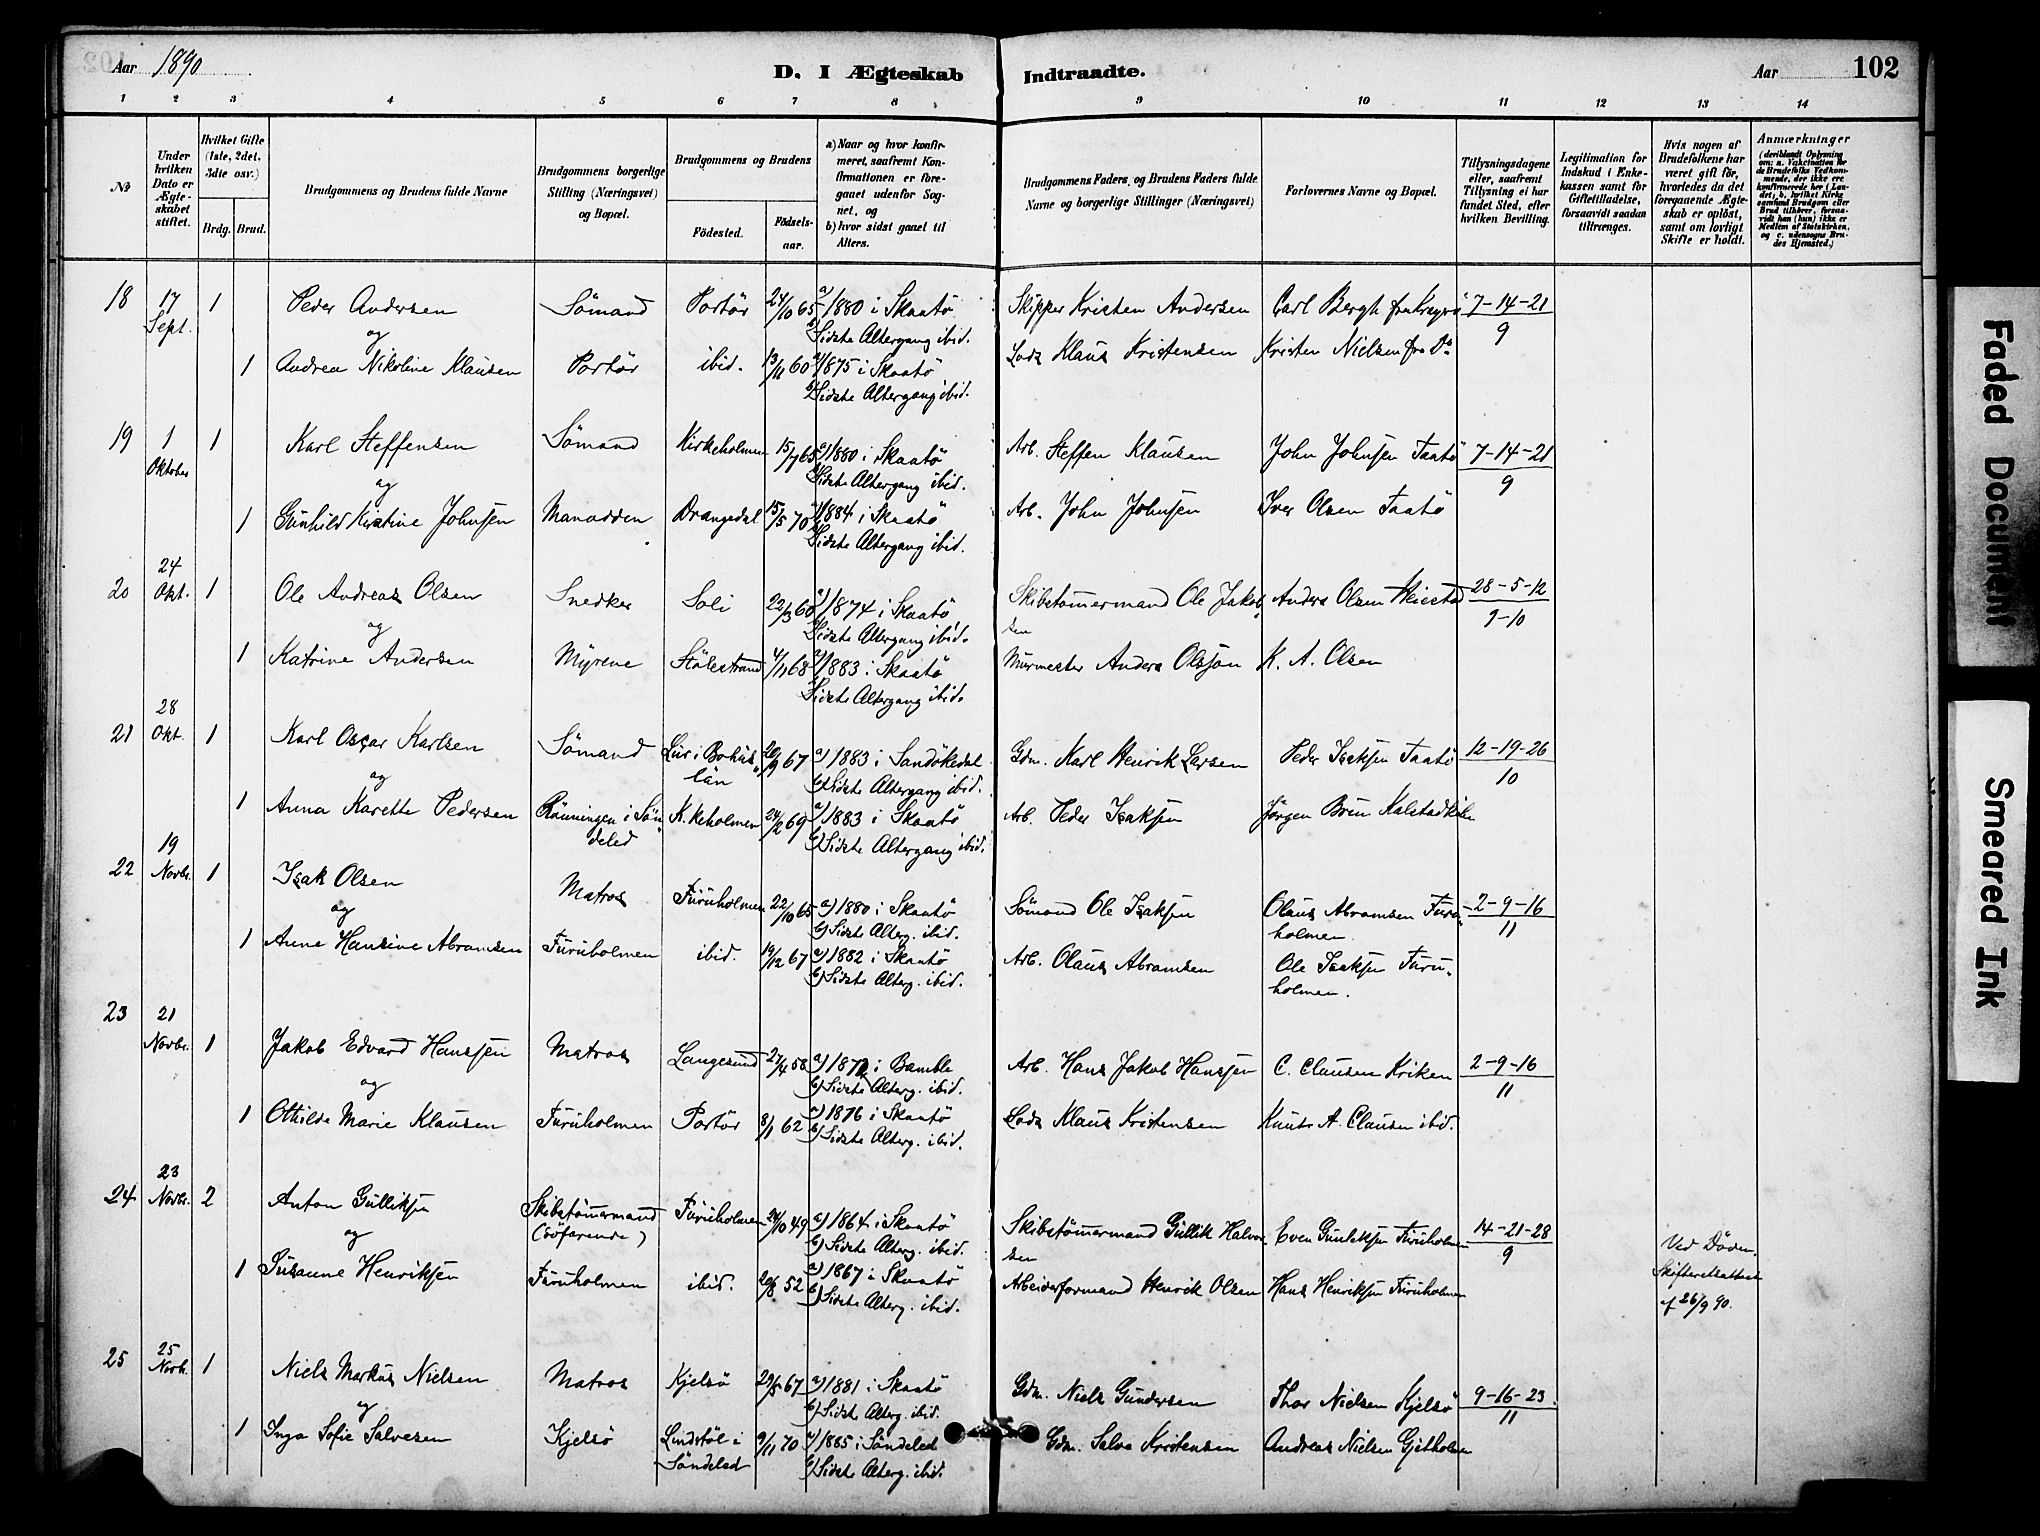 Aar 1890
D. I Ægteskab Indtraadte.
Aar 102
1 2 3 4 5 6 7 8 9 10 11 12 13 14
No
Under hvilken Dato er Ægteskabet stiftet.
Hvilket Gifte (1ste, 2det, 3die osv.)
Brdg. Brud.
Brudgommens og Brudens fulde Navne
Brudgommens borgerlige Stilling (Næringsvei) og Bopæl.
Brudgommens og Brudens
Fødested.
Fødsels-aar.
a) Naar og hvor konfirmeret, saafremt Konfirmationen er foregaaet udenfor Sognet, og
b) hvor sidst gaaet til Alters.
Brudgommens Faders og Brudens Faders fulde Navne og borgerlige Stillinger (Næringsvei)
Forlovernes Navne og Bopæl.
Tillysningsdagene eller, saafremt Tillysning ei har fundet Sted, efter hvilken Bevilling.
Legitimation for Indskud i Enkekassen samt for Giftetilladelse, forsaavidt saadan tiltrænges.
Hvis nogen af Brudefolkene har været gift før, hvorledes da det foregaaende Ægteskab er opløst, samt om lovligt Skifte er holdt.
Anmærkninger (deriblandt Oplysning om: a. Vakcination for de Brudefolks Vedkommende, der ikke ere konfirmerede her i Landet; b. hvilket Kirkesamfund Brudgom eller Brud tilhører, forsaavidt han (hun) ikke er Medlem af Statskirken, og c. udensogns Brudes Hjemsted.)
18 17 Sept. 1 Peder Andersen Sömand Portör 24/10 65 a) 1880 i Skaatö Skipper Kristen Andersen Carl Bergh fra Kragerö 7-14-21
og b) Sidste Altergang ibid. 9
1 Andrea Nikoline Klausen Portör ibid. 13/11 60 a) 1875 i Skaatö Lods Klaus Kristensen Kristen Nielsen fra Do
b) Sidste Altergang ibid.
19 1 Oktober 1 Karl Steffensen Sömand Kirkeholmen 15/7 65 a) 1880 i Skaatö Arb. Steffen Klausen John Johnsen Taatö 7-14-21
og b) Sidste Altergang ibid. 9
1 Gunhild Kirstine Johnsen Manodden Drangedal 15/5 70 a) 1884 i Skaatö Arb. John Johnsen Iver Olsen Taatö
b) Sidste Altergang ibid.
20 24 Okt. 1 Ole Andreas Olsen Snedker Soli 22/3 60 a) 1874 i Skaatö Skibstömmermand Ole Jakobsen Anders Olsen 28-5-12
og b) Sidste Altergang ibid. 9-10
1 Katrine Andersen Myrene Stölestrand 4/11 68 a) 1883 i Skaatö Murmester Anders Olsson K. A. Olsen
b) Sidste Altergang ibid.
21 28 Okt. 1 Karl Oscar Karlsen Sömand Lur i Bohuslän 20/9 67 a) 1883 i Sandökedal Gdm. Karl Henrik Larsen Peder Isaksen Taatö 12-19-26
og b) Sidste Altergang ibid. 10
1 Anna Karette Pedersen Rönningen i Söndeled K.keholmen 24/2 69 a) 1883 i Skaatö Arb. Peder Isaksen Jörgen Brun Kalstadkilen
b) Sidste Altergang ibid.
22 19 Novbr. 1 Isak Olsen Matros Furuholmen 22/10 65 a) 1880 i Skaatö Sömand Ole Isaksen Olaus Abramsen Furuholmen. 2-9-16
og b) Sidste Alterg. ibid. 11
1 Anne Hansine Abramsen Furuholmen ibid. 19/12 67 a) 1882 i Skaatö Arb. Olaus Abramsen Ole Isaksen Furuholmen.
b) Sidste Alterg. ibid.
23 21 Novbr. 1 Jakob Edvard Hanssen Matros Langesund 27/4 58 a) 1872 i Bamble Arb. Hans Jakob Hanssen C. Clausen Kriken 2-9-16
og b) Sidste Alterg. ibid. 11
1 Othilde Marie Klausen Furuholmen Portör 8/1 62 a) 1876 i Skaatö Lods Klaus Kristensen Knut A. Clausen ibid.
b) Sidste Alterg. ibid.
24 23 Novbr. 2 Anton Gulliksen Skibstömmermand (söfarende) Furuholmen 24/10 49 a) 1864 i Skaatö Skibstömmermand Gullik Halvorsen Even Gunleksen Furuholmen 14-21-28
og b) Sidste Alterg. ibid. 9 Ved Döden. Skifteretsattest af 26/9 90.
1 Susanne Henriksen Furuholmen ibid. 20/8 52 a) 1867 i Skaatö Arbeiderformand Henrik Olsen Hans Henriksen Furuholmen
b) Sidste Alterg. ibid.
25 25 Novb. 1 Niels Markus Nielsen Matros Kjelsö 29/5 67 a) 1881 i Skaatö Gdm. Niels Gundersen Thor Nielsen Kjelsö 9-16-23.
og b) Sidste Alterg. ibid. 11
1 Inga Sofie Salvesen Kjelsö Lindstöl i Söndeled 9/11 70 a) 1885 i Söndeled Gdm. Salve Kristensen Andreas Nielsen Gjetholmen
b) Sidste Alterg. ibid.
Faded Document
Smeared Ink